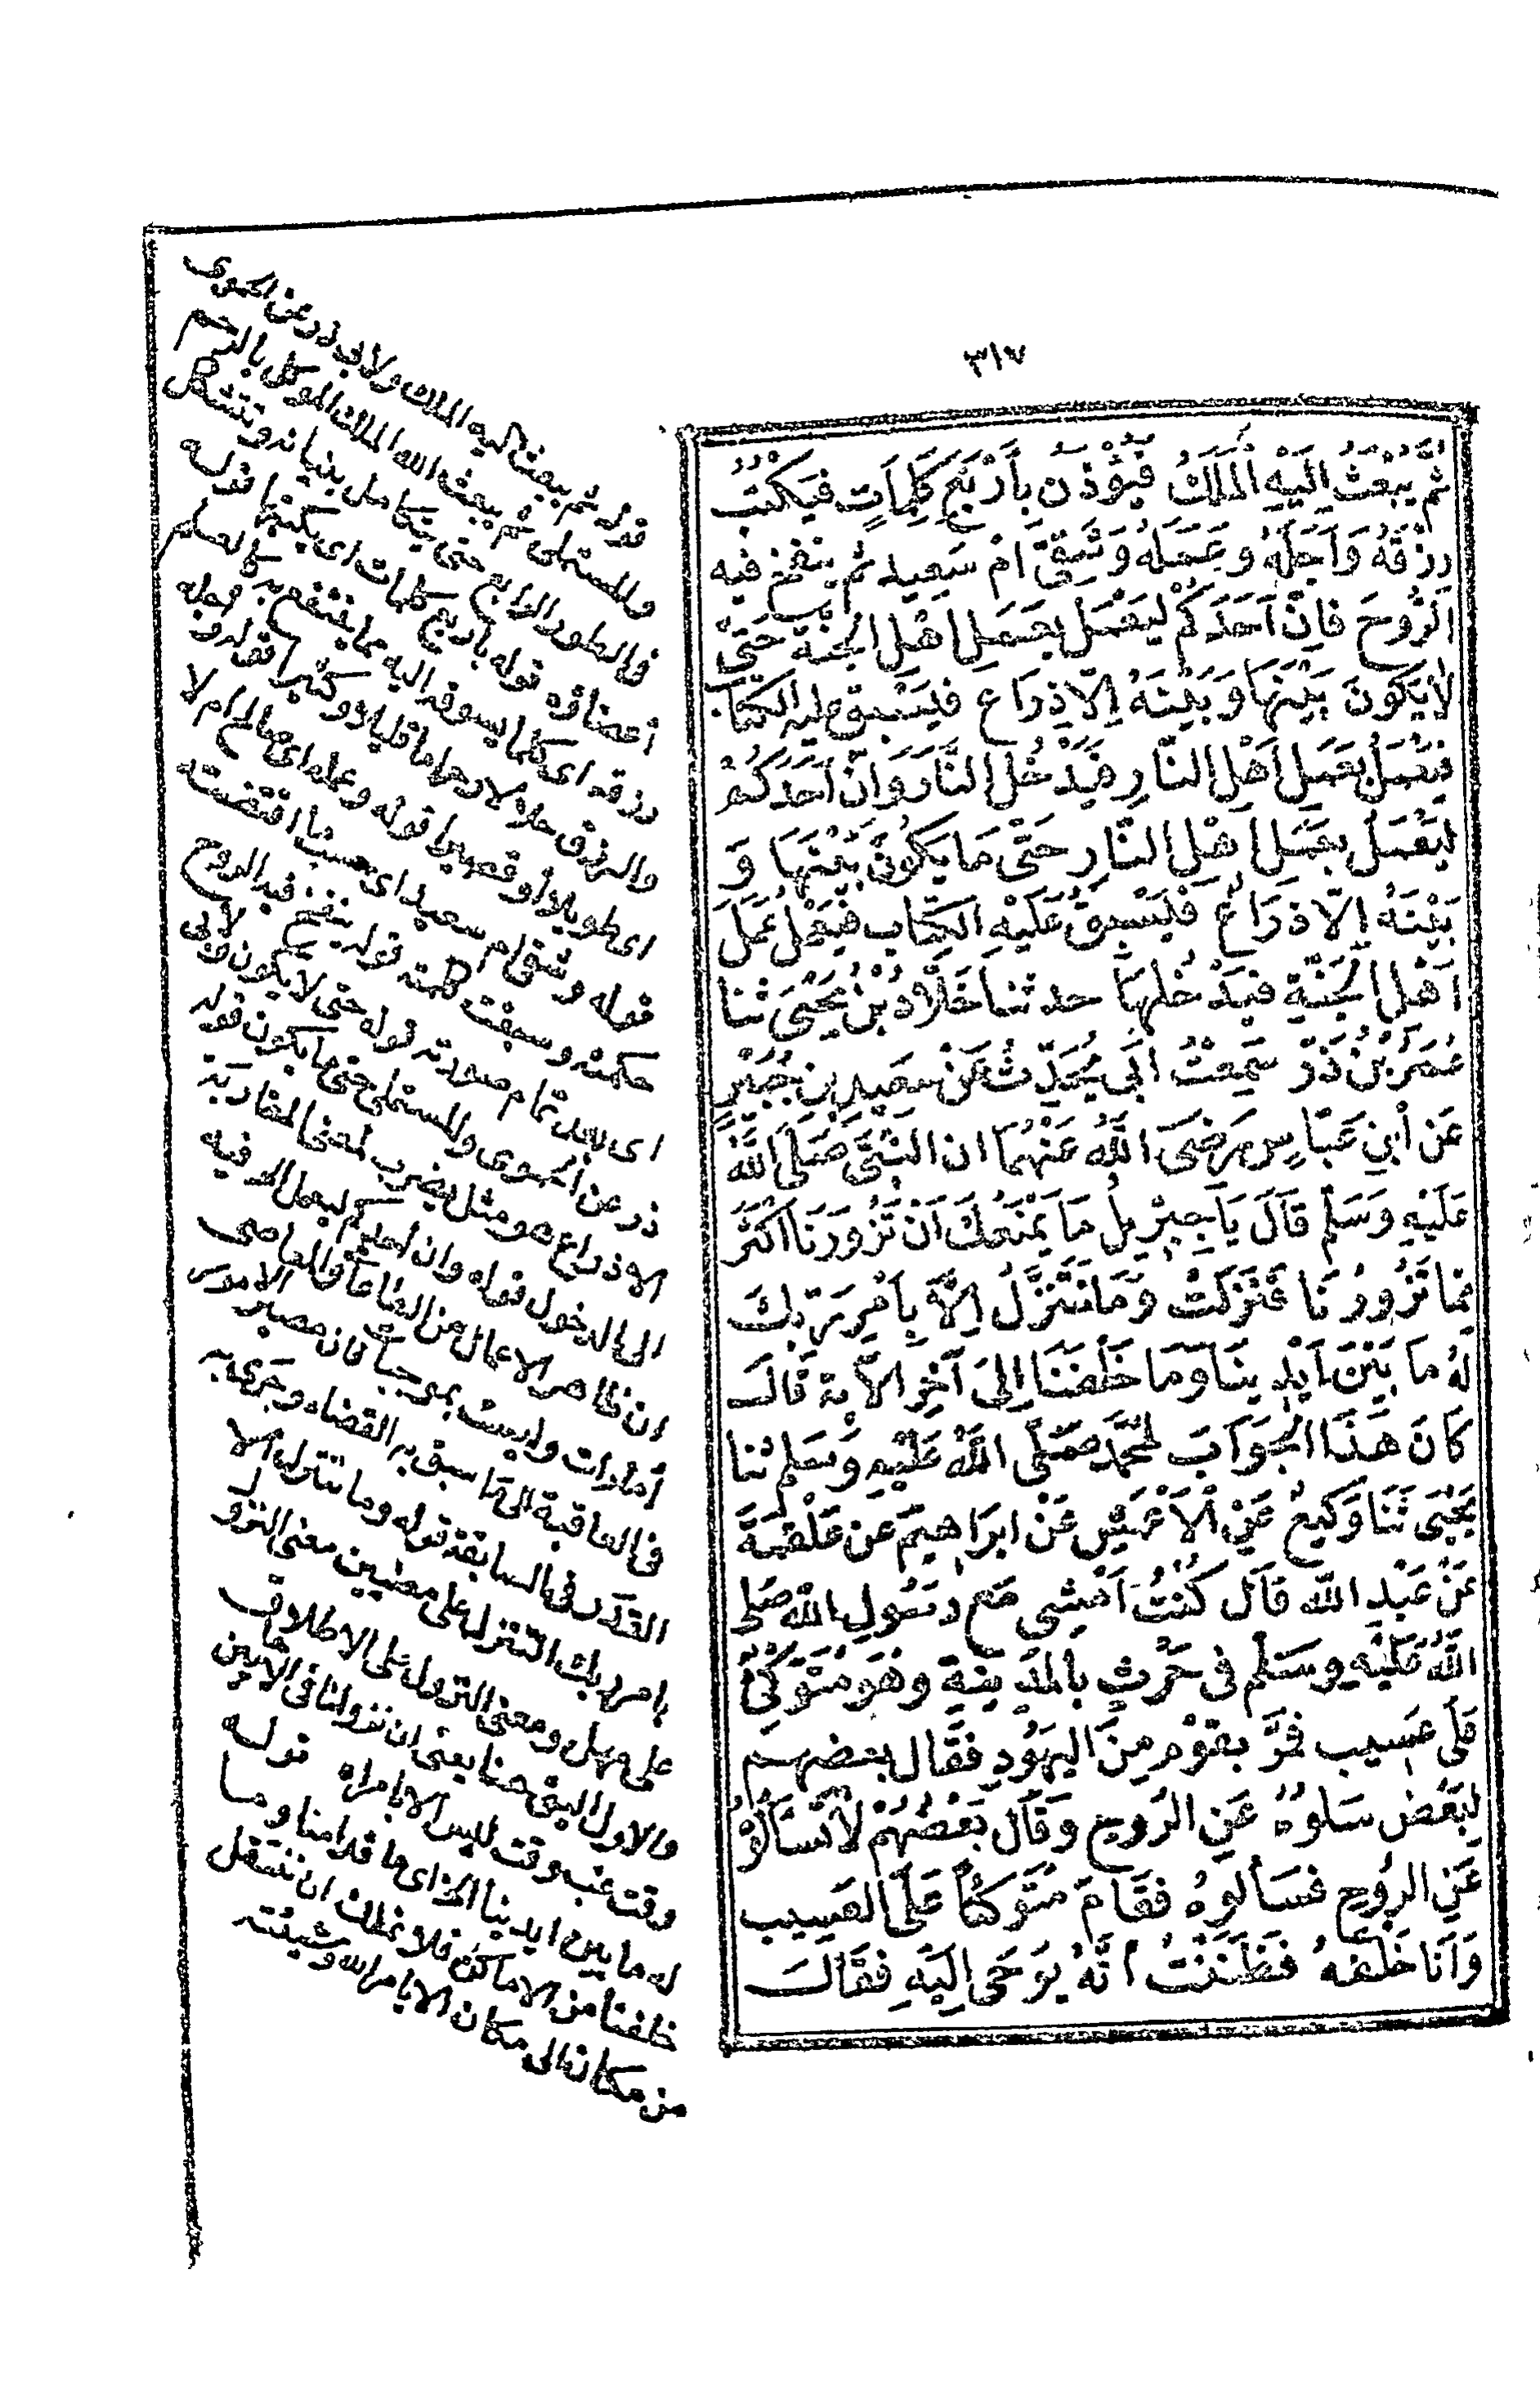 ٣١٧
ثُمَّ يُبْعَثُ إِلَيْهِ الْمَلَكُ فَيُؤْذَنُ بِأَرْبَعِ كَلِمَاتٍ فَيَكْتُبُ
رِزْقَهُ وَاَجَلَهُ وَعَمَلَهُ وَشَقِيٌّ اَمْ سَعِيد ثُمَّ ينفخ فيه
الرُّوحَ فَاِنَّ اَحَدَكُمْ لَيَعْمَلُ بِعَمَلِ اهْلِ الجَنَّة حَتّى
لَا يَكُونَ بَيْنَهَا وَبَيْنَهُ اِلّا ذِرَاع فَيَسْبِقُ عليه الكتاب
فيَعْمَلُ بِعَمَلِ اَهْلِ النّارِ فيَدْخُلُ النَّارَ وَاِنَّ اَحَدَكُمْ
لَيَعْمَلُ بِعَمَلِ اَهْلِ النّارِ حَتّى مَا يَكُونُ بَيْنَهَا وَ
بَيْنَهُ اِلّا ذِرَاعٌ فَيَسْبِقُ عَلَيْهِ الكِتَاب فَيَعْمَلُ عَمَلَ
اَهْلِ الجَنَّةِ فيَدْخُلهَا حدثنا خَلّادُ بْنُ يَحْيَى ثنا
عُمَرُ بْنُ ذَرّ سَمِعْتُ ابَي يُحَدِّثُ عَنْ سعِيدِ بنِ جُبَيْرٍ
عَن اْبنِ عَبّاسٍ رَضِيَ اللّهُ عَنْهُما ان النَّبيَّ صَلَّى اللّهُ
عَلَيْهِ وَسَلَّم قَالَ يَا جِبْرِيلُ مَا يَمْنَعُكَ اَنْ تَزُورَنَا اَكْثَرَ
مِمَا تَزُورُنَا فَنَزَلَتْ وَمَا نَتَنَزَّلُ اِلَّا بِاَمْرِ رَبّكَ
لهُ مَا بَيْنَ اَيْدِينَا وَمَا خَلْفَنَا اِلىَ آخِرِ الآية قَالَ
كَانَ هَذَا الجَوَابَ لمحَمَّد صَلّى اللّهُ عَلَيْهِ وَسَلم ثنا
يَحْيَى ثَنَا وَكِيعٌ عَنِ الْاَعْمَشِ عَنْ ابرَاهِيمَ عَن عَلْقمَةَ
عَنْ عَبْدِ اللّه قَالَ كُنْتُ اَمْشِي مَع رسُولِ اللّه صَلى
اللّهُ عَلَيْهِ وسَلّم فى حَرْثٍ بالمَدِينةِ وهُوَ مُتَوَكّئٌ
عَلَى عَسِيب فمَرَّ بقوْم مِنَ اليهُودِ فقَال بعضهم
لِبَعْض سَلوُهُ عَنِ الرُوح وَقَال بَعْضُهُمْ لَا تَسْأَلُوْهُ
عَنِ الرُوحِ فسَألوهُ فقَامَ مُتَوَكئًا عَلَى العَسِيب
وَاَنَا خَلْفهُ فظَنَنْتُ اَنَّهُ يوُحَى اِلَيْهِ فقَالَ
قوله ثم يبعث اليه الملك ولابى ذر عن الحموى
والمستملى ثم يبعث الله الملك الموكل بالرحم
فى الطور الرابع حتى يتكامل بنيانه وتتشكل
أعضاؤه قوله باربع كلمات اى يكتبها قوله
رزقه اى كلما يسوقه اليه مما ينتفع به كالعلم
والرزق حلالا وحراما قليلا وكثيرا قوله واجله
اى طويلا أو قصيرا قوله وعمله اى صالح ام لا
قوله وشقى ام سعيد اى حسب ما اقتضته
حكمته وسبقت كلمته قوله ينفخ فيه الروح
اى بعد تمام صورته قوله حتى لا يكون لابى
ذر عن الحموى والمستملى حتى ما يكون قوله
الا ذراع هو مثل يضرب لمعنى المقاربة
الى الدخول قوله وان احدكم ليعمل الخ فيه
ان ظاهر الاعمال من الطاعات والمعاصى
أمارات وليست بموجبات فان مصير الامور
فى العاقبة الى ما سبق به القضاء وجرى به
القدر فى السابقة قوله وما نتنزل الا
بامر ربك التنزل على معنيين معنى النزول
على مهل ومعنى النزول على الاطلاق
والاول اليق هنا يعنى ان نزولنا فى الاحايين
وقت غب وقت ليس الا بامره قوله
له ما بين ايدينا الخ اى ما قدامنا وما
خلفنا من الاماكن فلا نملك ان ننتقل
من مكان الى مكان الا بامر الله ومشيئته